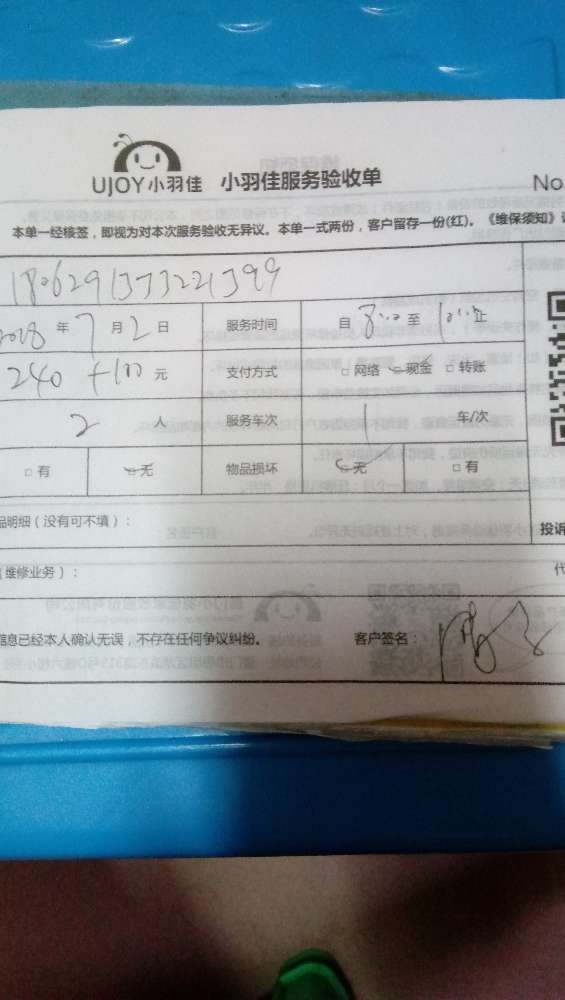 UJOY小羽佳 小羽佳服务验收单
No
本单一经核签，即视为对本次服务验收无异议。本单一式两份，客户留存一份(红)。《维保须知》
180629133221399
2018 年 7 月 2 日 服务时间 自 8:00 至 10:00 止
240 +100 元 支付方式 □网络 □现金 □转账
2 人 服务车次 1 车/次
□有 □无 物品损坏 □无 □有
品明细（没有可不填）： 投诉
（维修业务）： 代
信息已经本人确认无误，不存在任何争议纠纷。 客户签名：